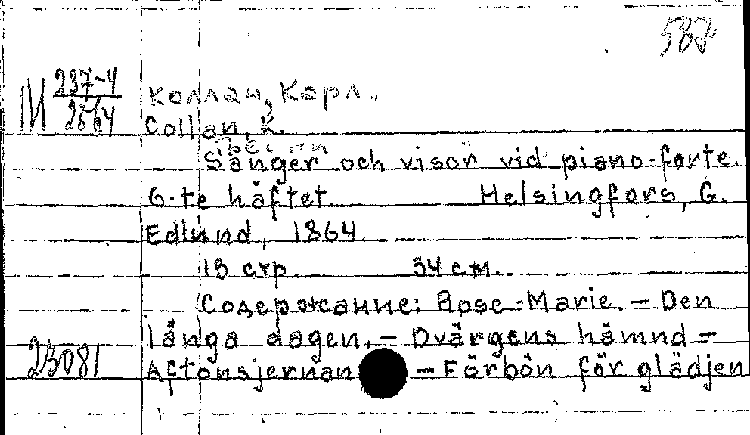 587
М 237-4
2564
Коллан, Карл.
Collan, K.
Sånger och visor vid piano-forte.
6-te häftet. Helsingfors, G.
Edlund, 1864
13 стр. 34 см.
Содержание: Rose-Marie. – Den
långa dagen. – Dvärgens hämnd –
Aftonsjernan – Förbön för glädjen
23081